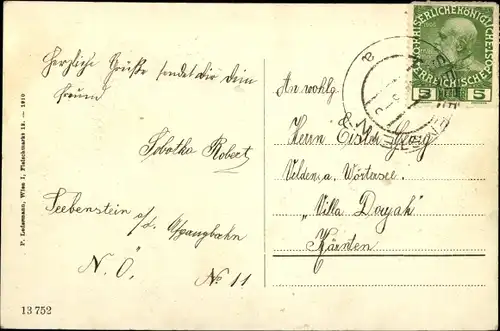 Herzliche Grüße sendet dir dein
Freund
Sobotka Robert
Seebenstein a/d. Aspangbahn
N. Ö. No 11
P. Ledermann, Wien I, Fleischmarkt 12. — 1910
13 752
An wohlg.
Herrn Georg
Velden a. Wörtersee.
„Villa
Kärnten
5 HELLER 5